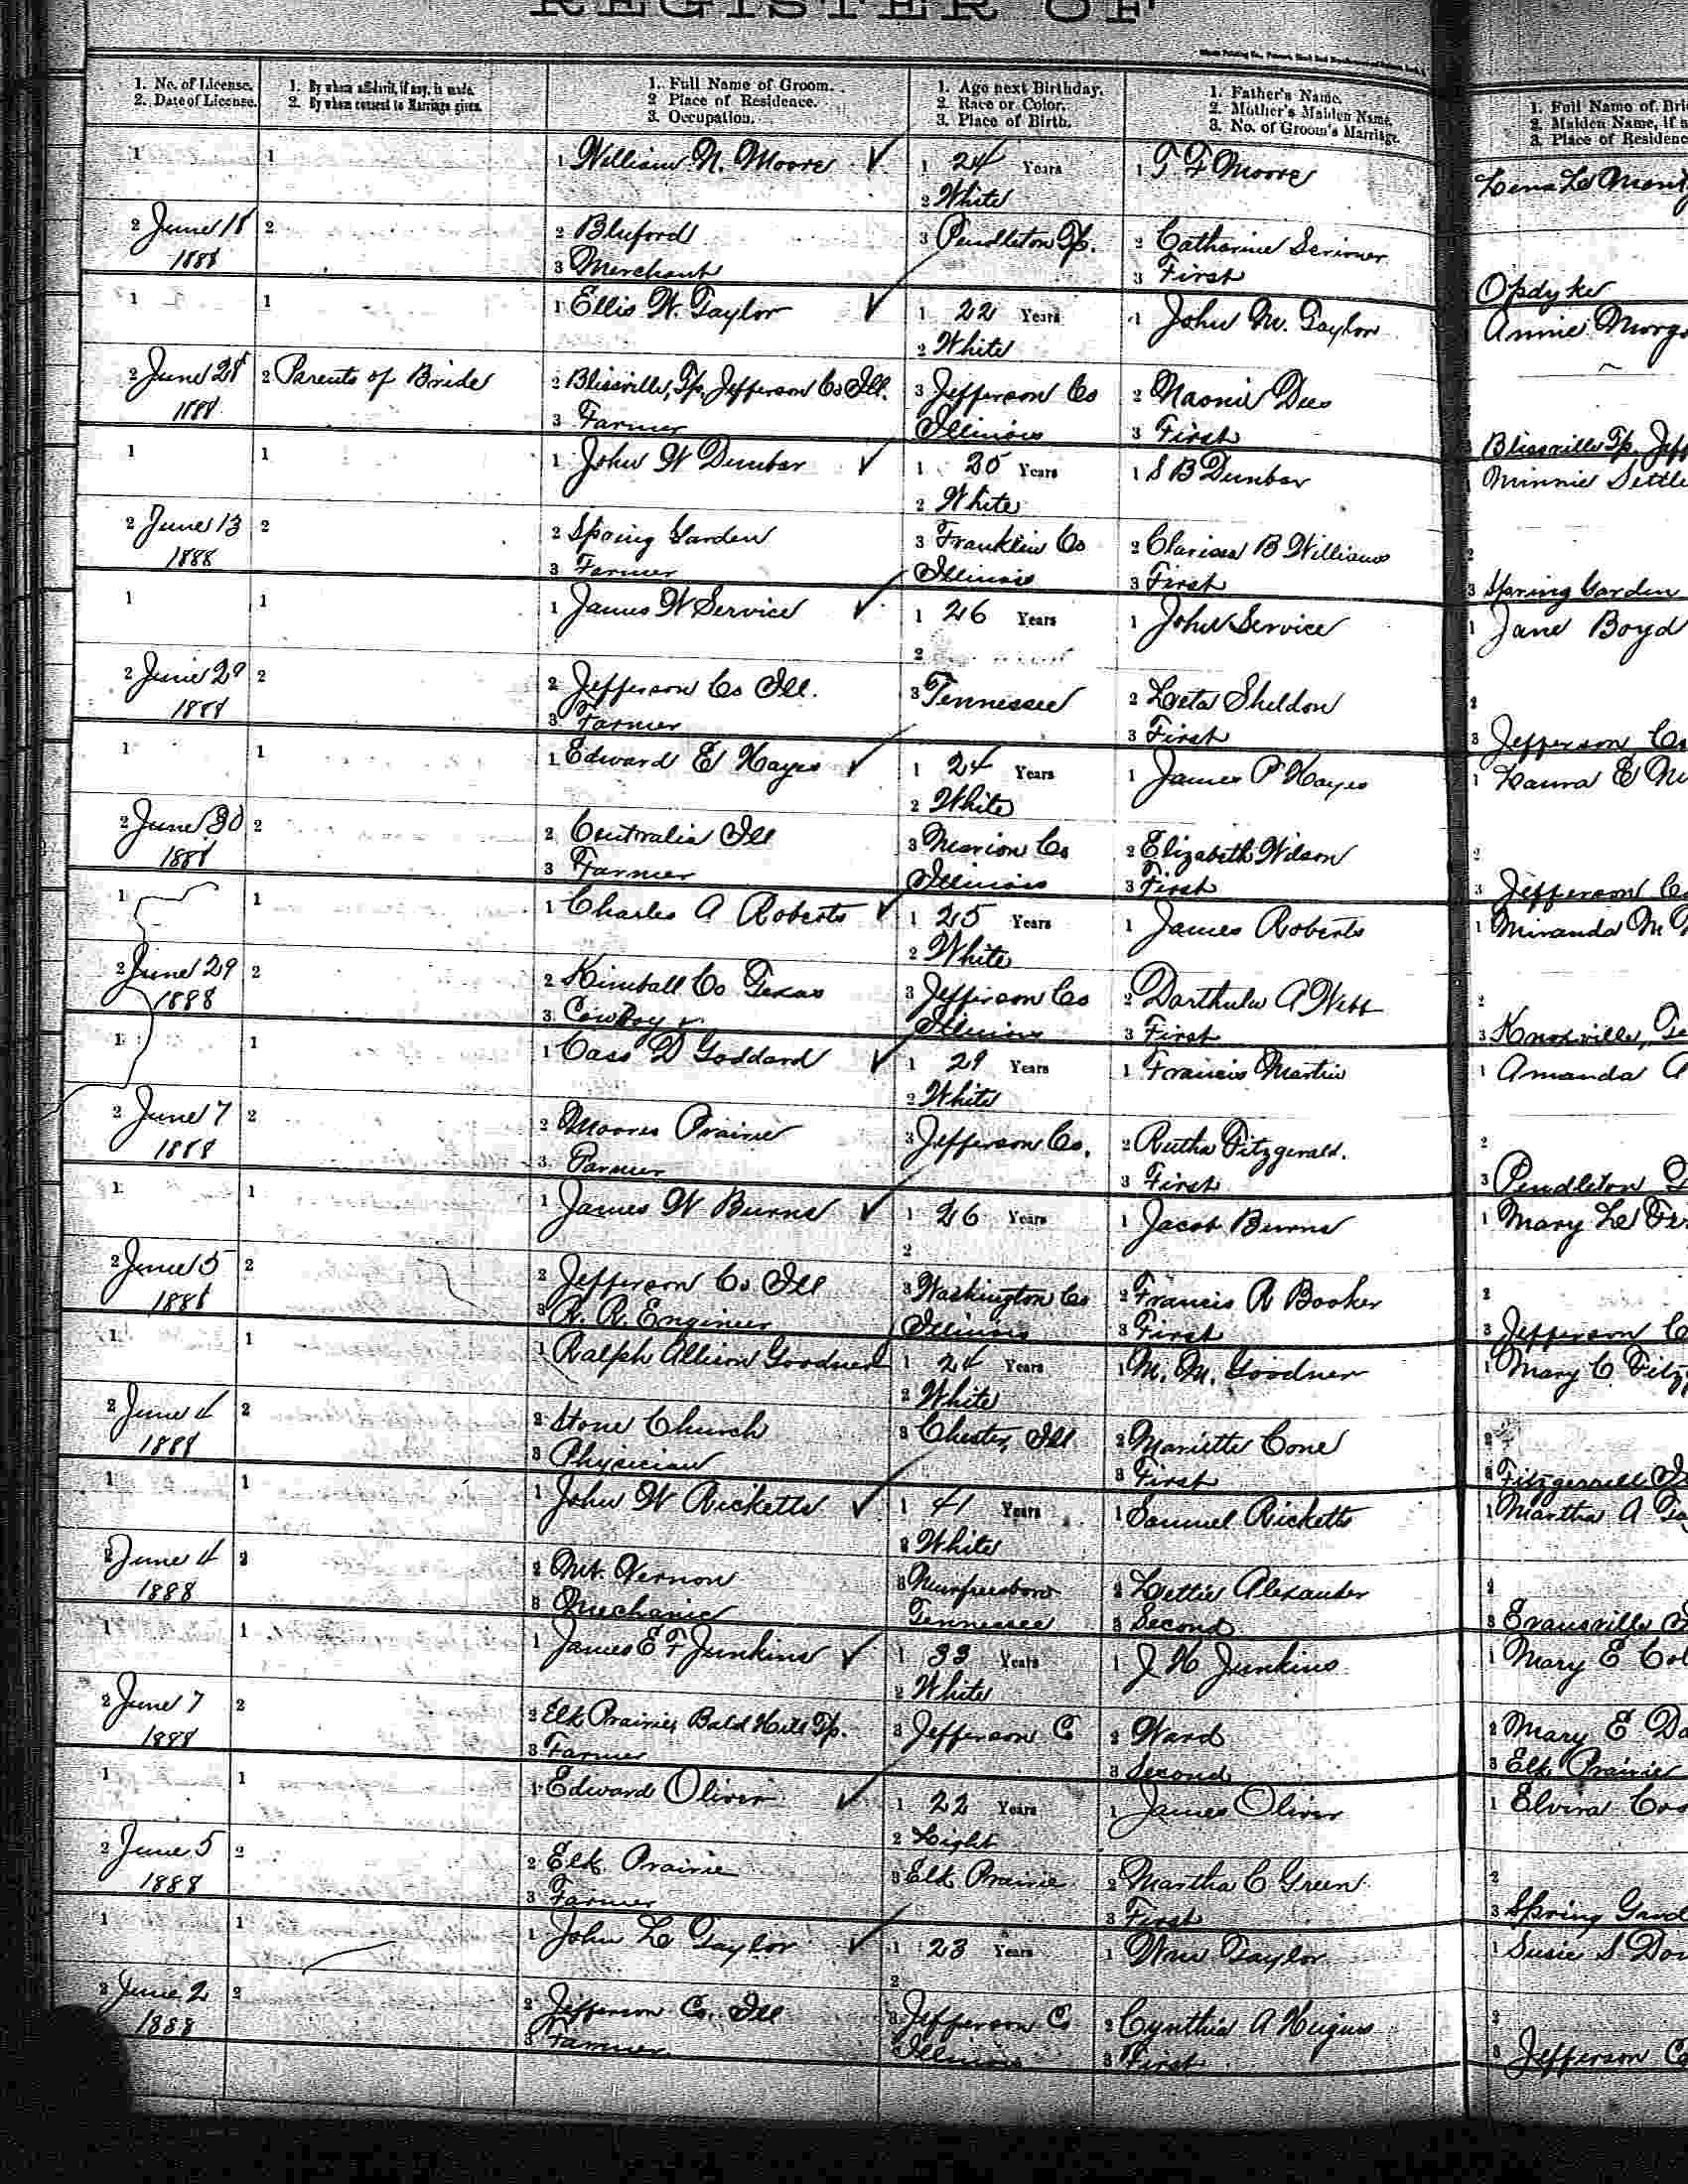 REGISTER OF
1. No. of License.
2. Date of License.
1. By whom affidavit, if any, is made.
2. By whom consent to Marriage given.
1. Full Name of Groom.
2 Place of Residence.
3. Occupation.
1. Age next Birthday.
2. Race or Color.
3. Place of Birth.
1. Father's Name.
2. Mother's Maiden Name.
3. No. of Groom's Marriage.
1. Full Name of Bri
2. Maiden Name, if
3. Place of Residenc
1 1 1 William N. Moore 1 24 Years 1 T F Moore Lena Le Mont
2 White
2 June 18 2 2 Bluford 3 Pendleton Tp. 2 Catharine Scrivner
1888 3 Merchant 3 First Opdyke
1 1 1 Ellis W. Taylor 1 22 Years 1 John M. Taylor Annie Morg
2 White
2 June 28 2 Parents of Bride 2 Blissville, Tp, Jefferson Co Ill. 3 Jefferson Co 2 Naomi Dees
1888 3 Farmer Illinois 3 First Blissville Tp. Jeff
1 1 1 John W Dunbar 1 Years 1 S B Dunbar Minnie Settle
2 White
2 June 13 2 2 Spring Garden 3 Franklin Co 2 Clarissa B Williams 2
1888 3 Farmer Illinois 3 First 3 Spring Garden
1 1 1 James W Service 1 26 Years 1 John Service 1 Jane Boyd
2
2 June 29 2 2 Jefferson Co Ill. 3 Tennessee 2 Leta Sheldon 2
1888 3 Farmer 3 First 3 Jefferson Co
1 1 1 Edward E Hayes 1 24 Years 1 James P Hayes 1 Laura E
2 White
2 June 30 2 2 Centralia Ill 3 Marion Co 2 Elizabeth Wilson 2
1888 3 Farmer Illinois 3 First 3 Jefferson Co
1 1 1 Charles A Roberts 1 25 Years 1 James Roberts 1 Miranda M
2 White
2 June 29 2 2 Kimball Co Texas 3 Jefferson Co 2 Darthula A Webb 2
1888 3 Cowboy Illinois 3 First 3 Knoxville, Te
1 1 1 Cass D Goddard 1 29 Years 1 Francis Martin 1 Amanda A
2 White
2 June 7 2 2 Moores Prairie 3 Jefferson Co. 2 Rutha Fitzgerald. 2
1888 3 Farmer 3 First 3 Pendleton
1 1 1 James W Burns 1 26 Years 1 Jacob Burns 1 Mary
2
2 June 5 2 2 Jefferson Co Ill 3 Washington Co 2 Francis R Booker 2
1888 3 R. R. Engineer Illinois 3 First 3 Jefferson C
1 1 1 Ralph Allison Goodner 1 24 Years 1 M. M. Goodner 1 Mary C. Fitz
2 White
2 June 4 2 2 Stone Church 3 Chester, Ill 2 Mariette Cone 2
1888 3 Physician 3 First 3 Fitzgerrell
1 1 1 John W Ricketts 1 41 Years 1 Samuel Ricketts 1 Martha A
2 White
2 June 4 2 2 Mt. Vernon 3 Murfreesboro 2 Lettie Alexander 2
1888 3 Mechanic Tennessee 3 Second 3 Evansville
1 1 1 James E F Junkins 1 33 Years 1 J H Junkins 1 Mary E
2 White
2 June 7 2 2 Elk Prairie, Bald Hill Tp. 3 Jefferson C 2 Ward 2 Mary E
1888 3 Farmer 3 Second 3 Elk Prairie
1 1 1 Edward Oliver 1 22 Years 1 James Oliver 1 Elvira
2 Light
2 June 5 2 2 Elk Prairie 3 Elk Prairie 2 Martha C Green 2
1888 3 Farmer 3 First 3 Spring Gard
1 1 1 John L Taylor 1 23 Years 1 Wm Taylor 1 Susie S
2
2 June 2 2 2 Jefferson Co. Ill 3 Jefferson C 2 Cynthia A 2
1888 3 Farmer Illinois 3 First 3 Jefferson C